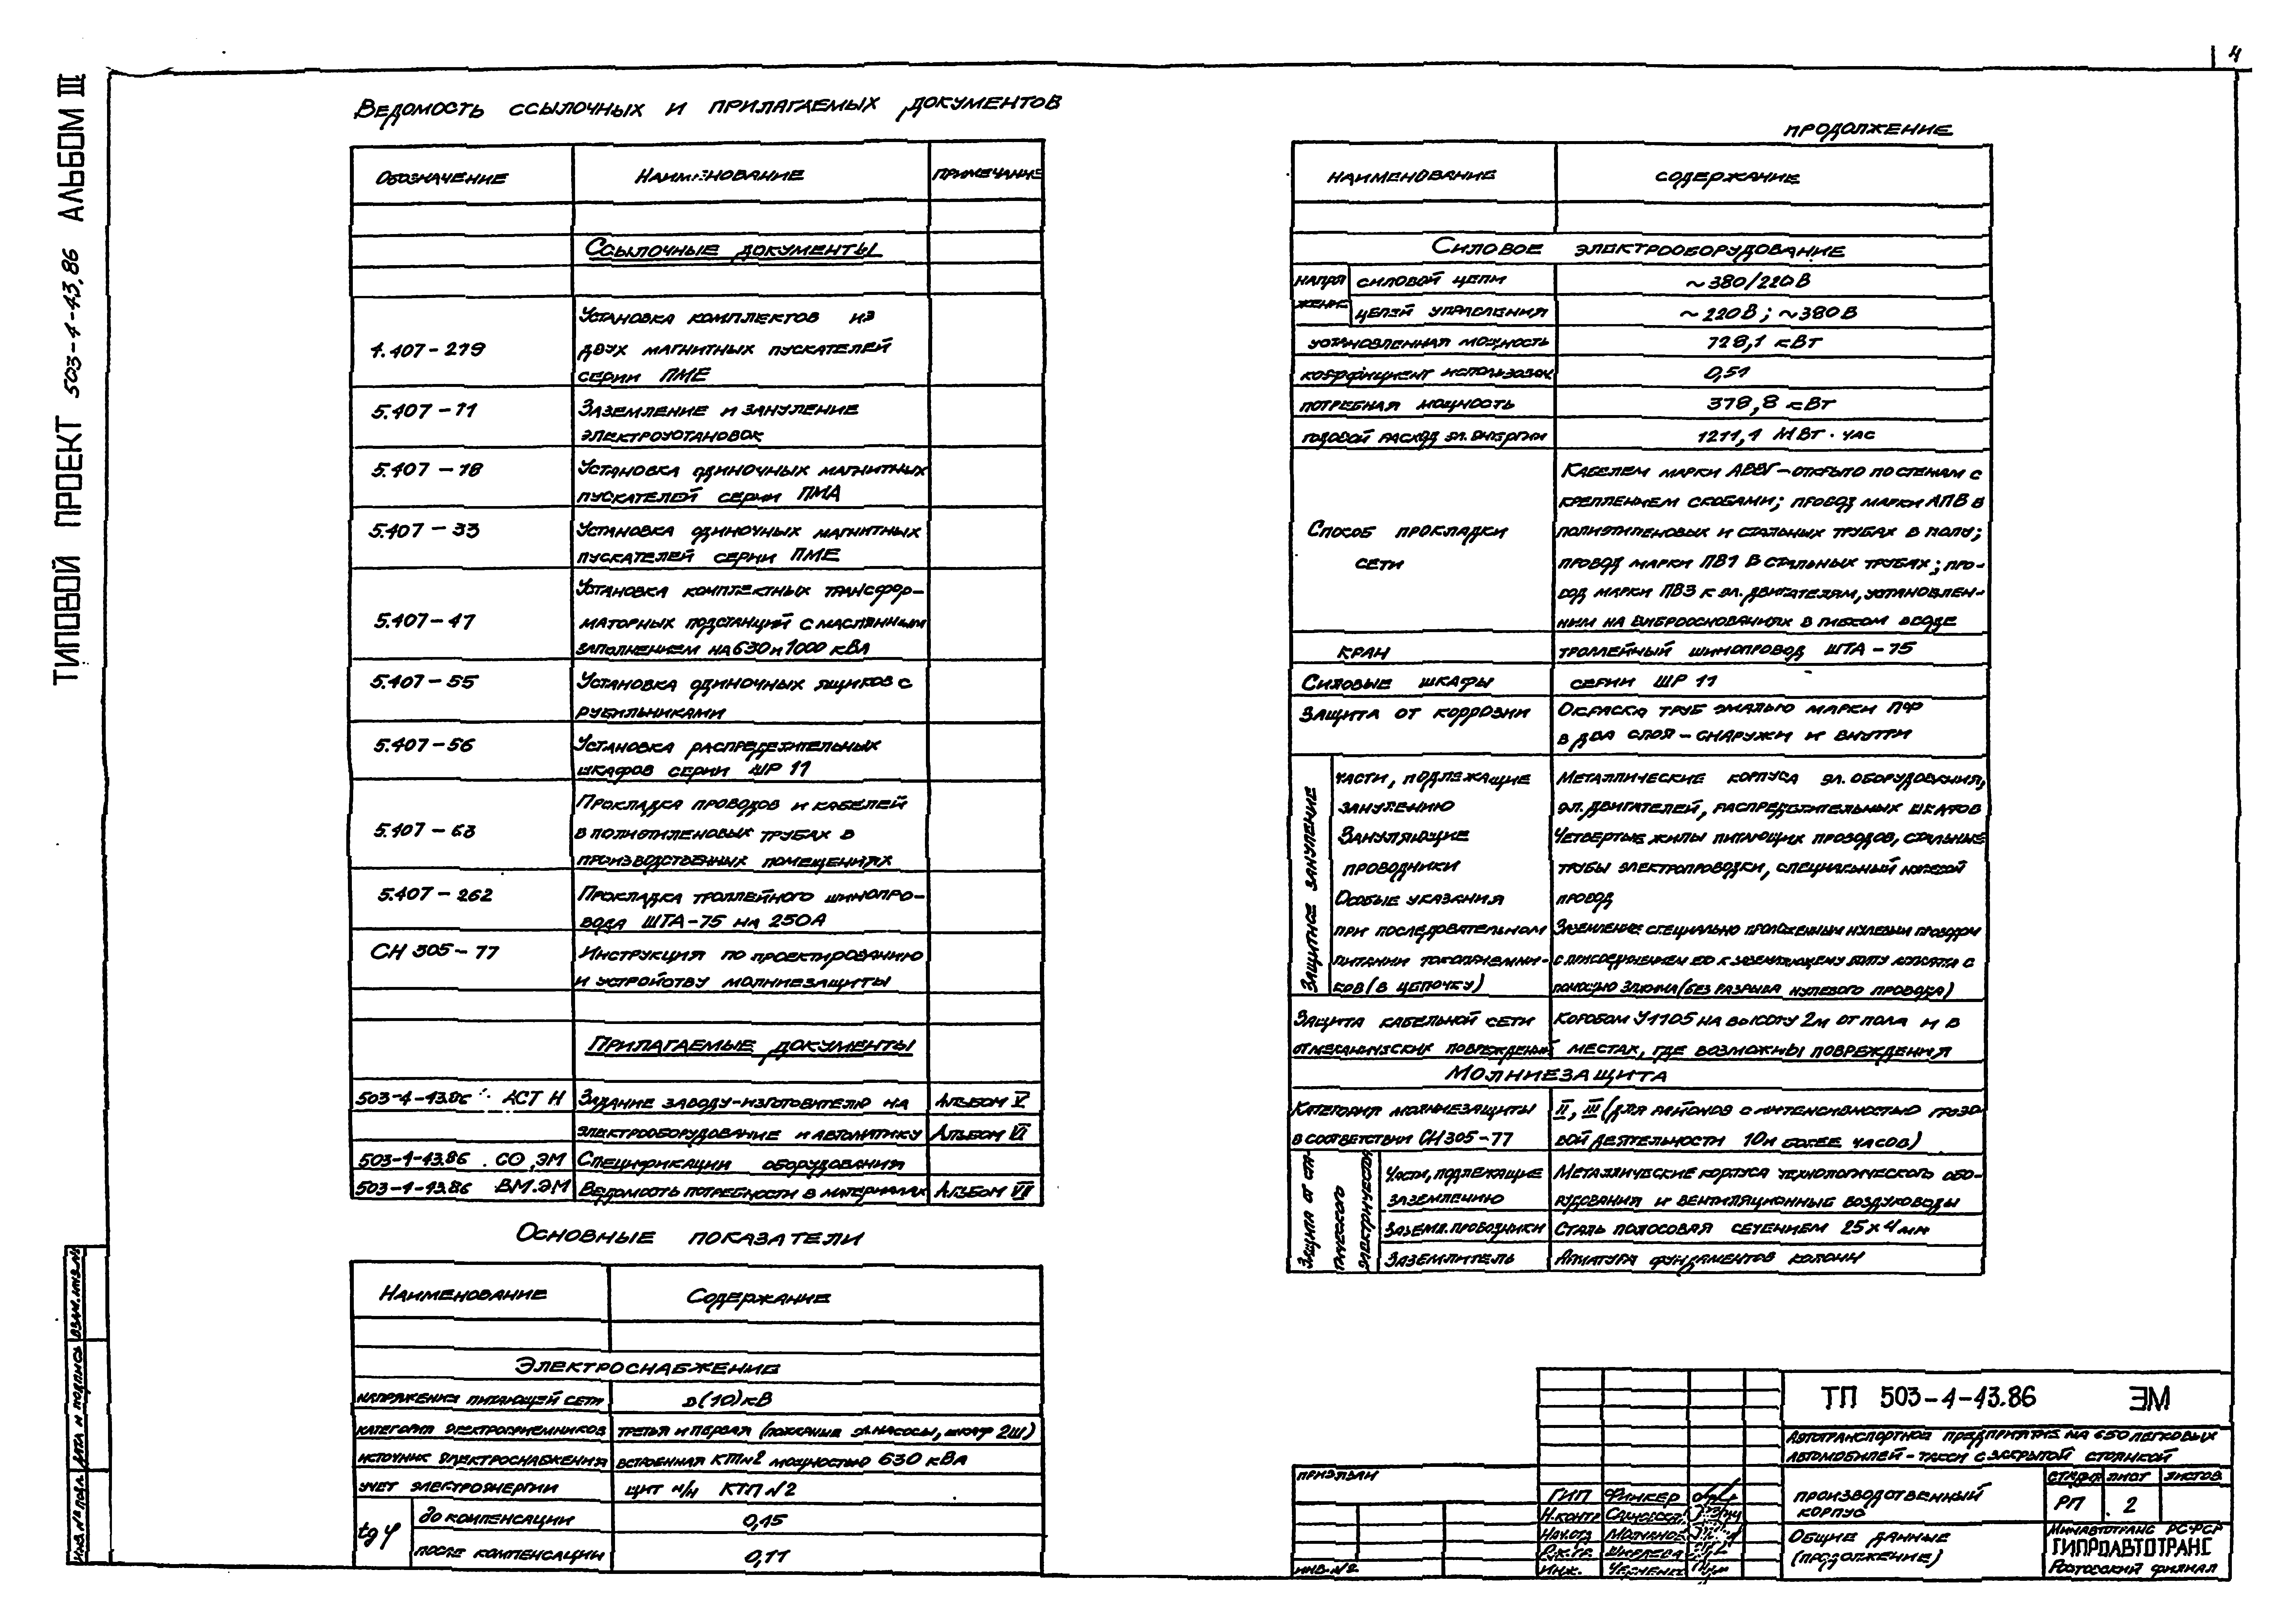 4
ТИПОВОЙ ПРОЕКТ 503-4-43.86 АЛЬБОМ III
Ведомость ссылочных и прилагаемых документов
Обозначение Наименование Примечание
Ссылочные документы
Установка комплектов из
4.407-279 двух магнитных пускателей
серии ПМЕ
5.407-11 Заземление и зануление
электроустановок
5.407-18 Установка одиночных магнитных
пускателей серии ПМА
5.407-33 Установка одиночных магнитных
пускателей серии ПМЕ
Установка комплектных трансфор-
5.407-47 маторных подстанций с масляным
заполнением на 630 и 1000 кВА
5.407-55 Установка одиночных ящиков с
рубильниками
5.407-56 Установка распределительных
шкафов серии ШР 11
Прокладка проводов и кабелей
5.407-63 в полиэтиленовых трубах в
производственных помещениях
5.407-262 Прокладка троллейного шинопро-
вода ШТА-75 на 250А
СН 305-77 Инструкция по проектированию
и устройству молниезащиты
Прилагаемые документы
503-4-43.86 АСТ Н Задание заводу-изготовителю на Альбом V
электрооборудование и автоматику Альбом VI
503-4-43.86 СО.ЭМ Спецификации оборудования
503-4-43.86 ВМ.ЭМ Ведомость потребности в материалах Альбом VII
Основные показатели
Наименование Содержание
Электроснабжение
напряжение питающей сети (10)кВ
категория электроприемников третья и первая (пожарные эл.насосы, шкаф 2Ш)
источник электроснабжения встроенная КТП№2 мощностью 630 кВА
учет электроэнергии щит н/н КТП №2
tg φ до компенсации 0,15
после компенсации 0,11
продолжение
наименование содержание
Силовое электрооборудование
напря силовой цепи ~380/220В
жение цепей управления ~220В; ~380В
установленная мощность 728,1 кВт
коэффициент использован 0,51
потребная мощность 378,8 кВт
годовой расход эл.энергии 1211,1 МВт·час
Кабелем марки АВВГ-открыто по стенам с
креплением скобами; провод марки АПВ в
Способ прокладки полиэтиленовых и стальных трубах в полу;
сети провод марки ПВ1 в стальных трубах; про-
вод марки ПВ3 к эл.двигателям, установлен-
ным на виброоснованиях в гибком вводе
кран троллейный шинопровод ШТА-75
Силовые шкафы серии ШР 11
Защита от коррозии Окраска труб эмалью марки ПФ
в два слоя-снаружи и внутри
Защитное зануление
части, подлежащие Металлические корпуса эл.оборудования,
занулению эл.двигателей, распределительных шкафов
Зануляющие Четвертые жилы питающих проводов, стальные
проводники трубы электропроводки, специальный нулевой
Особые указания провод
при последовательном Зануление специально проложенным нулевым проводом
питании токоприемни- с присоединением его к заземляющему болту аппарата с
ков (в цепочку) помощью зажима (без разрыва нулевого провода)
Защита кабельной сети Коробом У1105 на высоту 2м от пола и в
от механических повреждений местах, где возможны повреждения
Молниезащита
Категория молниезащиты II, III (для районов с интенсивностью грозо
в соответствии СН 305-77 вой деятельности 10 и более часов)
Защита от ста-
тического
электричества
Части, подлежащие Металлические корпуса технологического обо-
заземлению рудования и вентиляционные воздуховоды
Заземл.проводники Сталь полосовая сечением 25х4мм
Заземлитель Арматура фундаментов колонн
ТП 503-4-43.86 ЭМ
Автотранспортное предприятие на 650 легковых
автомобилей-такси с закрытой стоянкой
Привязан
Инв.№
ГИП Финкер
Н.контр
Нач.отд Молчанов
Рук.гр.
Инж.
Производственный
корпус
стадия лист листов
РП 2
Общие данные
(продолжение)
Минавтотранс РСФСР
ГИПРОАВТОТРАНС
Ростовский филиал
Взам.инв.№
Дата и подпись
Инв.№ подл.